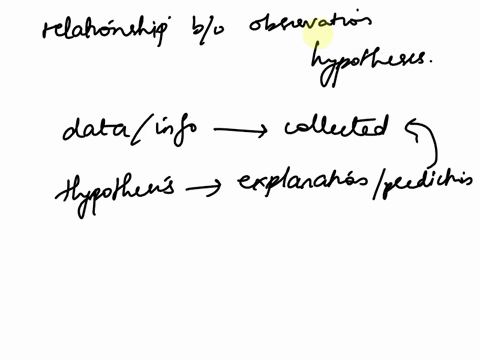 relationship b/o observation
hypotheses.
data/info → collected
Hypothesis → explanation/predictis